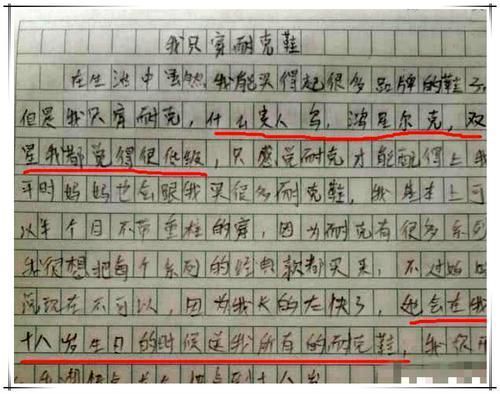 我只穿耐克鞋
在生活中虽然我能买得起很多品牌的鞋子
但是我只穿耐克，什么贵人鸟，鸿星尔克，双
星我都觉得很低级，只感觉耐克才能配得上我
平时妈妈也会跟我买很多耐克鞋，我基本上可
以半个月不带重样的穿，因为耐克有很多系列
我很想把每个系列的经典款都买来，不过妈妈
说现在不可以，因为我长的太快了，她会在我
十八岁生日的时候送我所有的耐克鞋，我很开